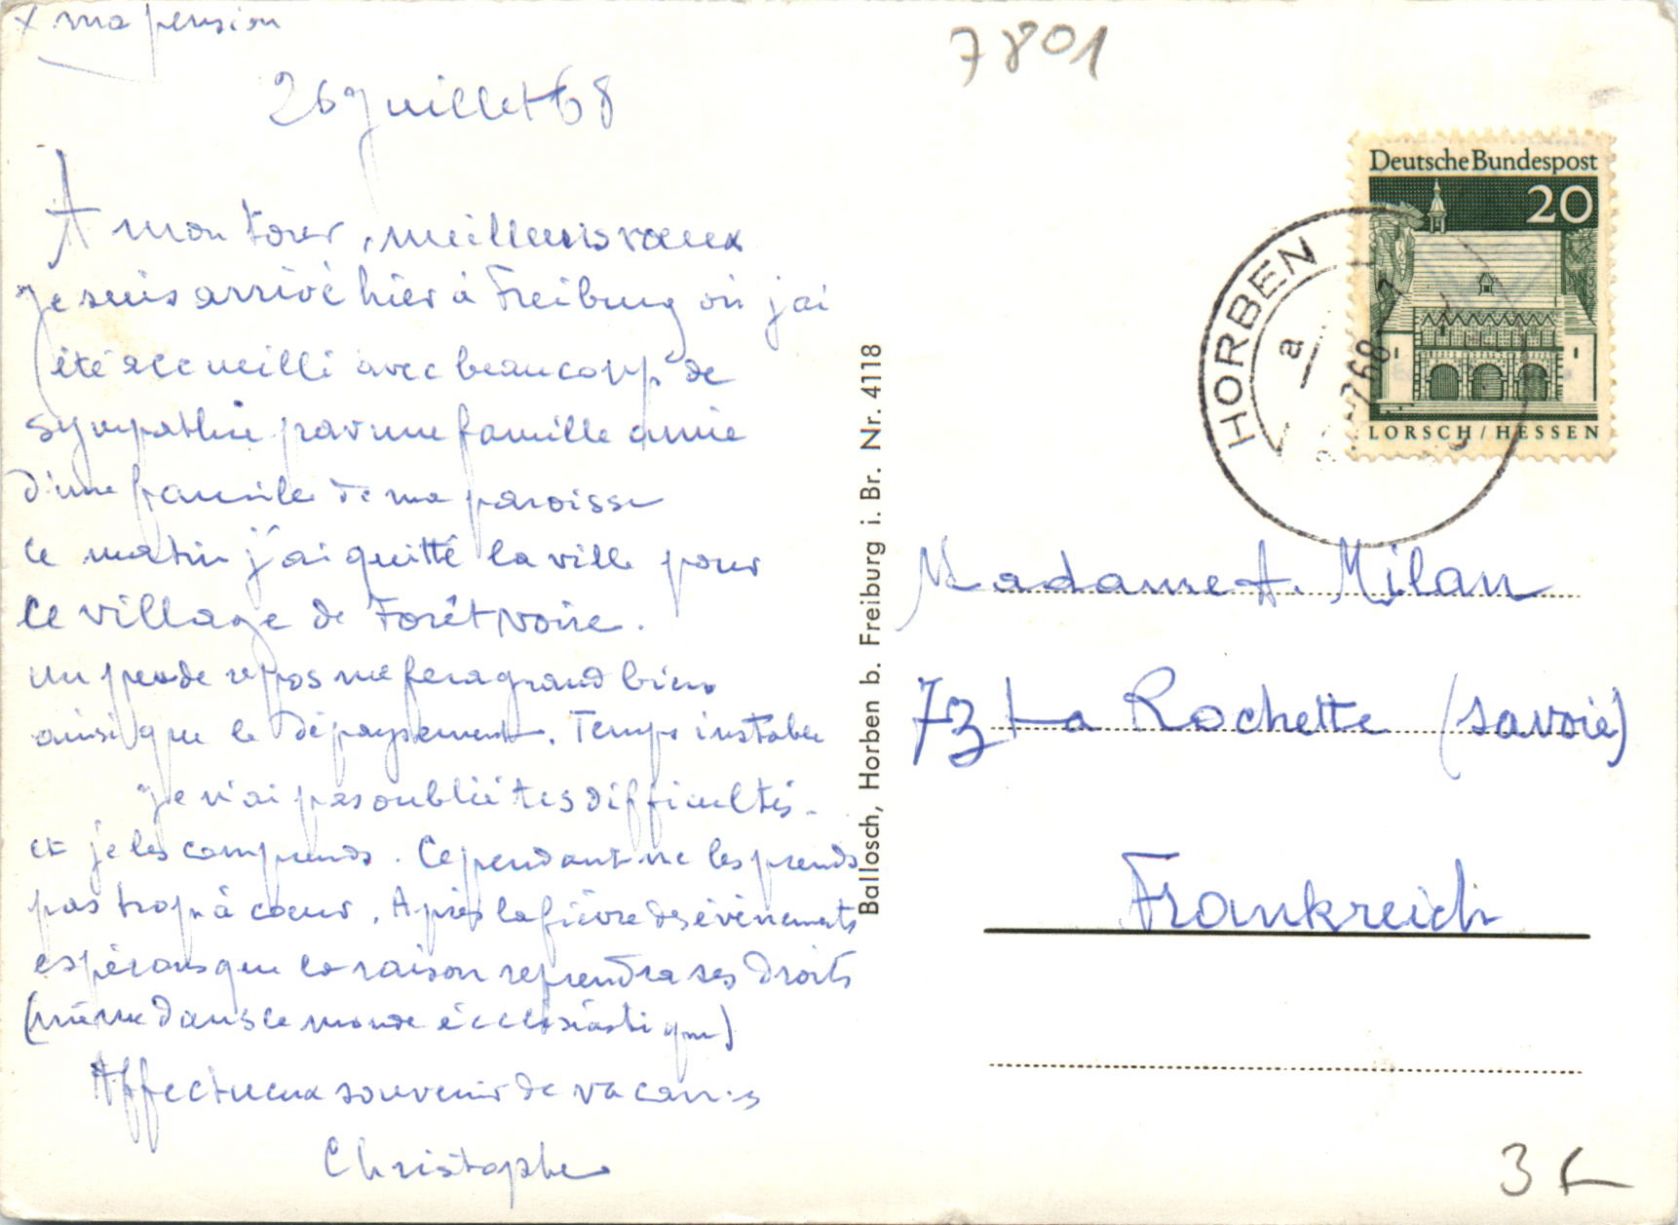 x ma pension
26 Juillet 68
A mon tour, meilleurs vœux
Je suis arrivé hier à Freiburg où j'ai
été accueilli avec beaucoup de
sympathie par une famille amie
d'une famille de ma paroisse
Ce matin j'ai quitté la ville pour
le village de Forêt noire.
Un peu de repos me fera grand bien
ainsi que le dépaysement. Temps instable
Je n'ai pas oublié tes difficultés.
et je les comprends. Cependant ne les prends
pas trop à cœur. Après la fièvre des évènements
espérons que la raison reprendra ses droits
(même dans le monde écclésiastique)
Affectueux souvenir de vacances
Christophe
Ballosch, Horben b. Freiburg i. Br. Nr. 4118
7801
Deutsche Bundespost
20
LORSCH/HESSEN
HORBEN
a
7.68
Madame A. Milan
73 La Rochette (Savoie)
Frankreich
3